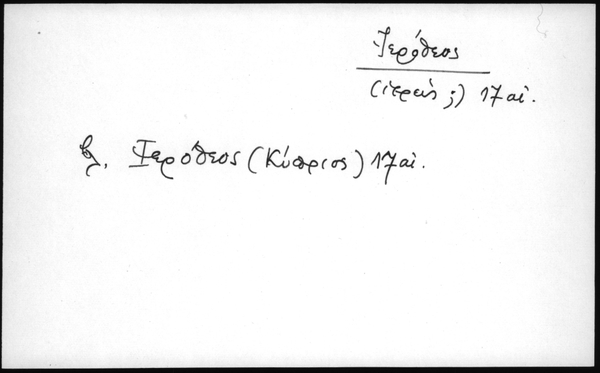 Ἱερόθεος
(ἱερεύς ;) 17 αἰ.
βλ. Ἱερόθεος (Κύπριος) 17 αἰ.